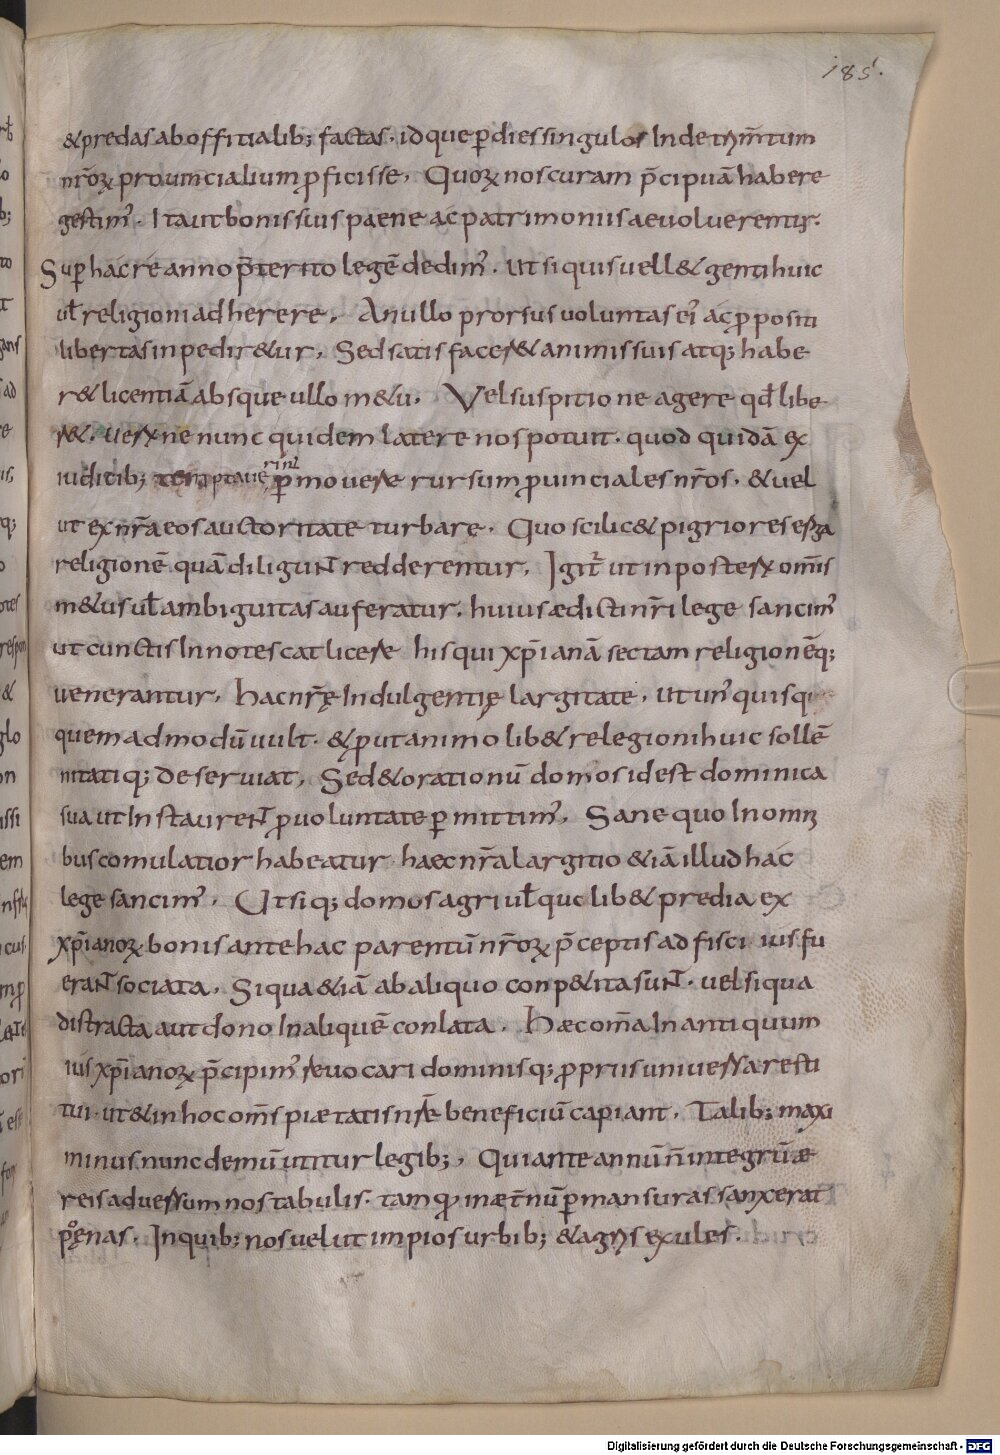 185.
& predas ab offitialib; factas. id que p̱ dies singulos In detrim̄tum
nr̄oꝝ prouincialium p̱ficisse. Quoꝝ nos curam p̄cipuā habere
gestim᾽. Ita ut bonis suis paene ac patrimoniis aeuoluerentur.
Sup̱ hac re anno p̄terito legē dedim᾽. ut si quis uell& genti huic
ut̄ religioni adherere. A nullo prorsus uoluntas ei᾽ ac p̱positi
libertas inpedir&ur. Sed satis facer& animis suis atq; habe
r& licentiā absque ullo m&u. Vel suspitione agere qd̄ libe
r&. Verū ne nunc quidem latere nos potuit. quod quidā ex
iudicib; temptauerint p̱mouere rursum p̱uinciales nr̄os. & uel
ut ex nr̄a eos auctoritate turbare. Quo scilic& pigriores erga
religionē quā diligunt redderentur. Igit᷑ ut in posterū om̄is
m&us ut̄ ambiguitas auferatur. huius ædicti nr̄i lege sancim᾽
ut cunctis Innotescat licere his qui xp̄ianā sectam religionēq;
uenerantur. Hac nr̄ę Indulgentię largitate. ut un᾽quisqu
quemadmodū uult. & p̱ut animo lib& relegioni huic sollē
nitatiq; deseruiat. Sed & orationū domos id est dominica
sua ut Instaurent p̱ uoluntate p̱mittim᾽. Sane quo In omi
bus comulatior habeatur haec nr̄a largitio &iā illud hac
lege sancim᾽. Ut siq; domos agri ut̄ quelib& predia ex
xp̄ianoꝝ bonis ante hac parentū nr̄oꝝ p̄ceptis ad fisci ius fu
erant sociata. Si qua &iā ab aliquo conp&ita sunt. uel si qua
distracta aut dono In aliquē conlata. Hæc om̄a In antiquum
ius xp̄ianoꝝ p̄cipim᾽ reuocari dominisq; p̱priis uniuersa resti
tui. ut & in hoc om̄s piætatis nr̄ē beneficiū capiant. Talib; maxi
minus nunc demū utitur legib;. Qui ante annū n̄ integrū æ
reis aduersum nos tabulis. tamq̱ in æt̄nū p̱mansuras sanxerat
poęnas. In quib; nos uelut impios urbib; & agris exules.
Digitalisierung gefördert durch die Deutsche Forschungsgemeinschaft - DFG